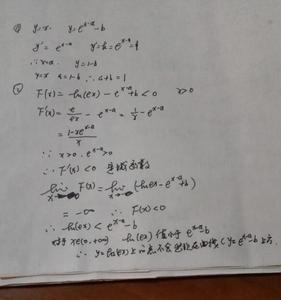 ① y=x. y=e^{x-a}-b
y'=e^{x-a} y'=k=e^{x-a}=1
∴x=a. y=1-b
y=x a=1-b ∴a+b=1
② F(x)=ln(ex)-e^{x-a}+b<0 x>0
F'(x)=\frac{e}{ex}-e^{x-a}=\frac{1}{x}-e^{x-a}
=\frac{1-xe^{x-a}}{x}
∵x>0. e^{x-a}>0
∴F'(x)<0 是减函数
lim F(x)=lim (ln ex-e^{x-a}+b)
=-∞ ∴F(x)<0
∴ln(ex)<e^{x-a}-b
对于x∈(0,+∞) ln(ex)值小于e^{x-a}-b
∴y=ln(ex)上的点不会出现在曲线(y=e^{x-a}-b上方